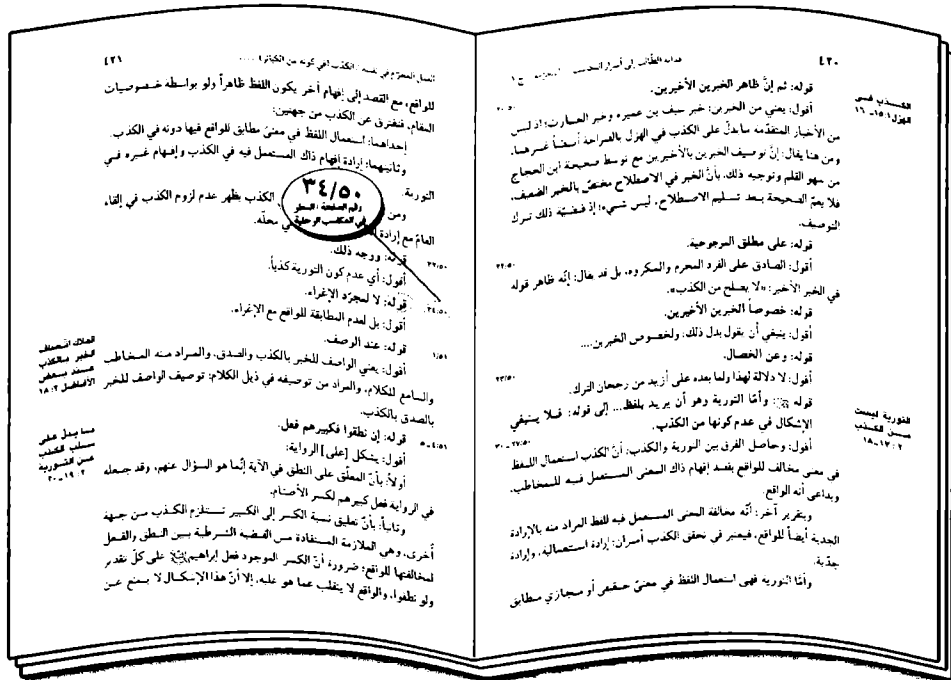 ٤٢٠
هداية الطالب إلى أسرار المكاسب ج ١
قوله: ثم إنَّ ظاهر الخبرين الأخيرين.
أقول: يعني من الخبرين: خبر سيف بن عميرة وخبر الحارث؛ إذ ليس
من الأخبار المتقدّمة ما يدلّ على الكذب في الهزل بالصراحة أيضاً غيرهما،
ومن هنا يقال: إنَّ توصيف الخبرين بالأخيرين مع توسط صحيحة ابن الحجاج
من سهو القلم وتوجيه ذلك، بأنَّ الخبر في الاصطلاح مختصّ بالخبر الضعيف،
فلا يعمّ الصحيحة بعد تسليم الاصطلاح، ليس شيء؛ إذ قضيّة ذلك ترك
التوصيف.
قوله: على مطلق المرجوحية.
أقول: الصادق على الفرد المحرم والمكروه، بل قد يقال: إنّه ظاهر قوله
في الخبر الأخير: «لا يصلح من الكذب».
قوله: خصوصاً الخبرين الأخيرين.
أقول: ينبغي أن يقول بدل ذلك: ولخصوص الخبرين....
قوله: وعن الخصال.
أقول: لا دلالة لهذا ولما بعده على أزيد من رجحان الترك.
قوله: وأمّا التورية وهو أن يريد بلفظ... إلى قوله: فلا ينبغي
الإشكال في عدم كونها من الكذب.
أقول: وحاصل الفرق بين التورية والكذب: أنّ الكذب استعمال اللفظ
في معنى مخالف للواقع بقصد إفهام ذاك المعنى المستعمل فيه للمخاطب،
وبداعي أنه الواقع.
وبتقرير آخر: أنّه مخالفة المعنى المستعمل فيه للفظ المراد منه بالإرادة
الجدية أيضاً للواقع، فيعتبر في تحقق الكذب أمران: إرادة استعمالية، وإرادة
جدّية.
وأمّا التورية فهي استعمال اللفظ في معنىً حقيقي أو مجازي مطابق
الكذب في
الهزل ١: ١٥ـ ١٦
٢٢/٥٠
٢٣/٥٠
٢٧/٥٠ـ ٣٠
التورية ليست
من الكذب
٢: ١٧ـ ١٨
٤٢١
الكذب (في كونه من الكبائر) ....
للواقع، مع القصد إلى إفهام آخر يكون اللفظ ظاهراً ولو بواسطة خصوصيات
المقام، فتفترق عن الكذب من جهتين:
إحداهما: استعمال اللفظ في معنىً مطابق للواقع فيها دونه في الكذب.
وثانيتهما: إرادة إفهام ذاك المستعمل فيه في الكذب وإفهام غيره في
التورية.
ومن الكذب يظهر عدم لزوم الكذب في إلقاء
العامّ مع إرادة في محلّه.
قوله: ووجه ذلك.
أقول: أي عدم كون التورية كذباً.
قوله: لا لمجرّد الإغراء.
أقول: بل لعدم المطابقة للواقع مع الإغراء.
قوله: عند الوصف.
أقول: يعني الواصف للخبر بالكذب والصدق، والمراد منه المخاطب
والسامع للكلام، والمراد من توصيفه في ذيل الكلام: توصيف الواصف للخبر
بالصدق بالكذب.
قوله: إن نطقوا فكبيرهم فعل.
أقول: يشكل [على] الرواية:
أولاً: بأنّ المعلّق على النطق في الآية إنّما هو السؤال عنهم، وقد جعله
في الرواية فعل كبيرهم لكسر الأصنام.
وثانياً: بأنّ تعليق نسبة الكسر إلى الكبير تستلزم الكذب من جهة
أُخرى، وهي الملازمة المستفادة من القضية الشرطية بين النطق والفعل
لمخالفتها للواقع؛ ضرورة أنّ الكسر الموجود فعل إبراهيم على كلّ تقدير
ولو نطقوا، والواقع لا ينقلب عما هو عليه، إلا أنّ هذا الإشكال لا يمنع عن
٣٤/٥٠
رقم الصفحة / السطر
في المكاسب الرحلية
٣٣/٥٠
٣٤/٥٠
١/٥١
٤/٥١ـ ٥
الملاك اتصاف
الخبر بالكذب
عند بعض
الأفاضل ٢: ١٨
ما يدل على
سلب الكذب
عن التورية
٢: ١٩ـ ٢٠